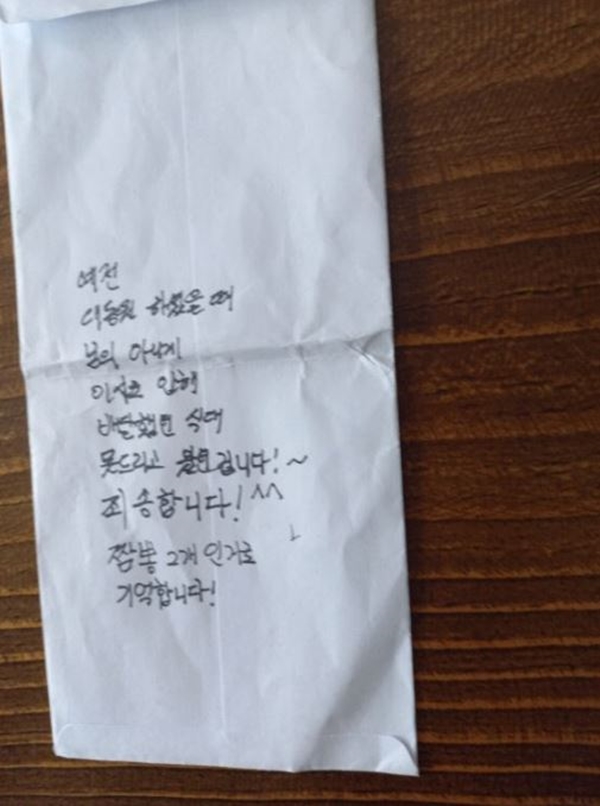 예전
하였을 때
본의 아니게
이사로 인해
배달했던 식대
못드리고
죄송합니다! ^^
짬뽕 2개 인거로
기억합니다!